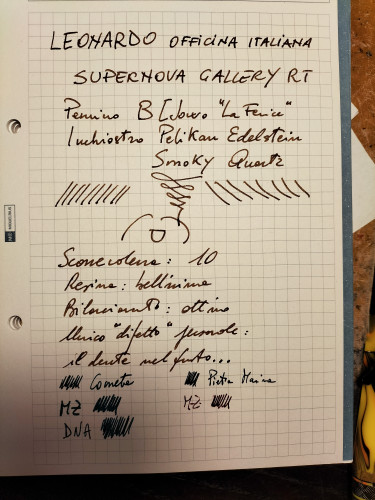 LEONARDO OFFICINA ITALIANA
SUPERNOVA GALLERY RT
Pennino B [Jowo "La Fenice"
Inchiostro Pelikan Edelstein
Smoky Quartz
Scorrevolezza: 10
Resina: bellissima
Bilanciamento: ottimo
Unico "difetto" personale:
il dente nel fusto...
Cometa Pietra Marina
MZ MZ
DNA